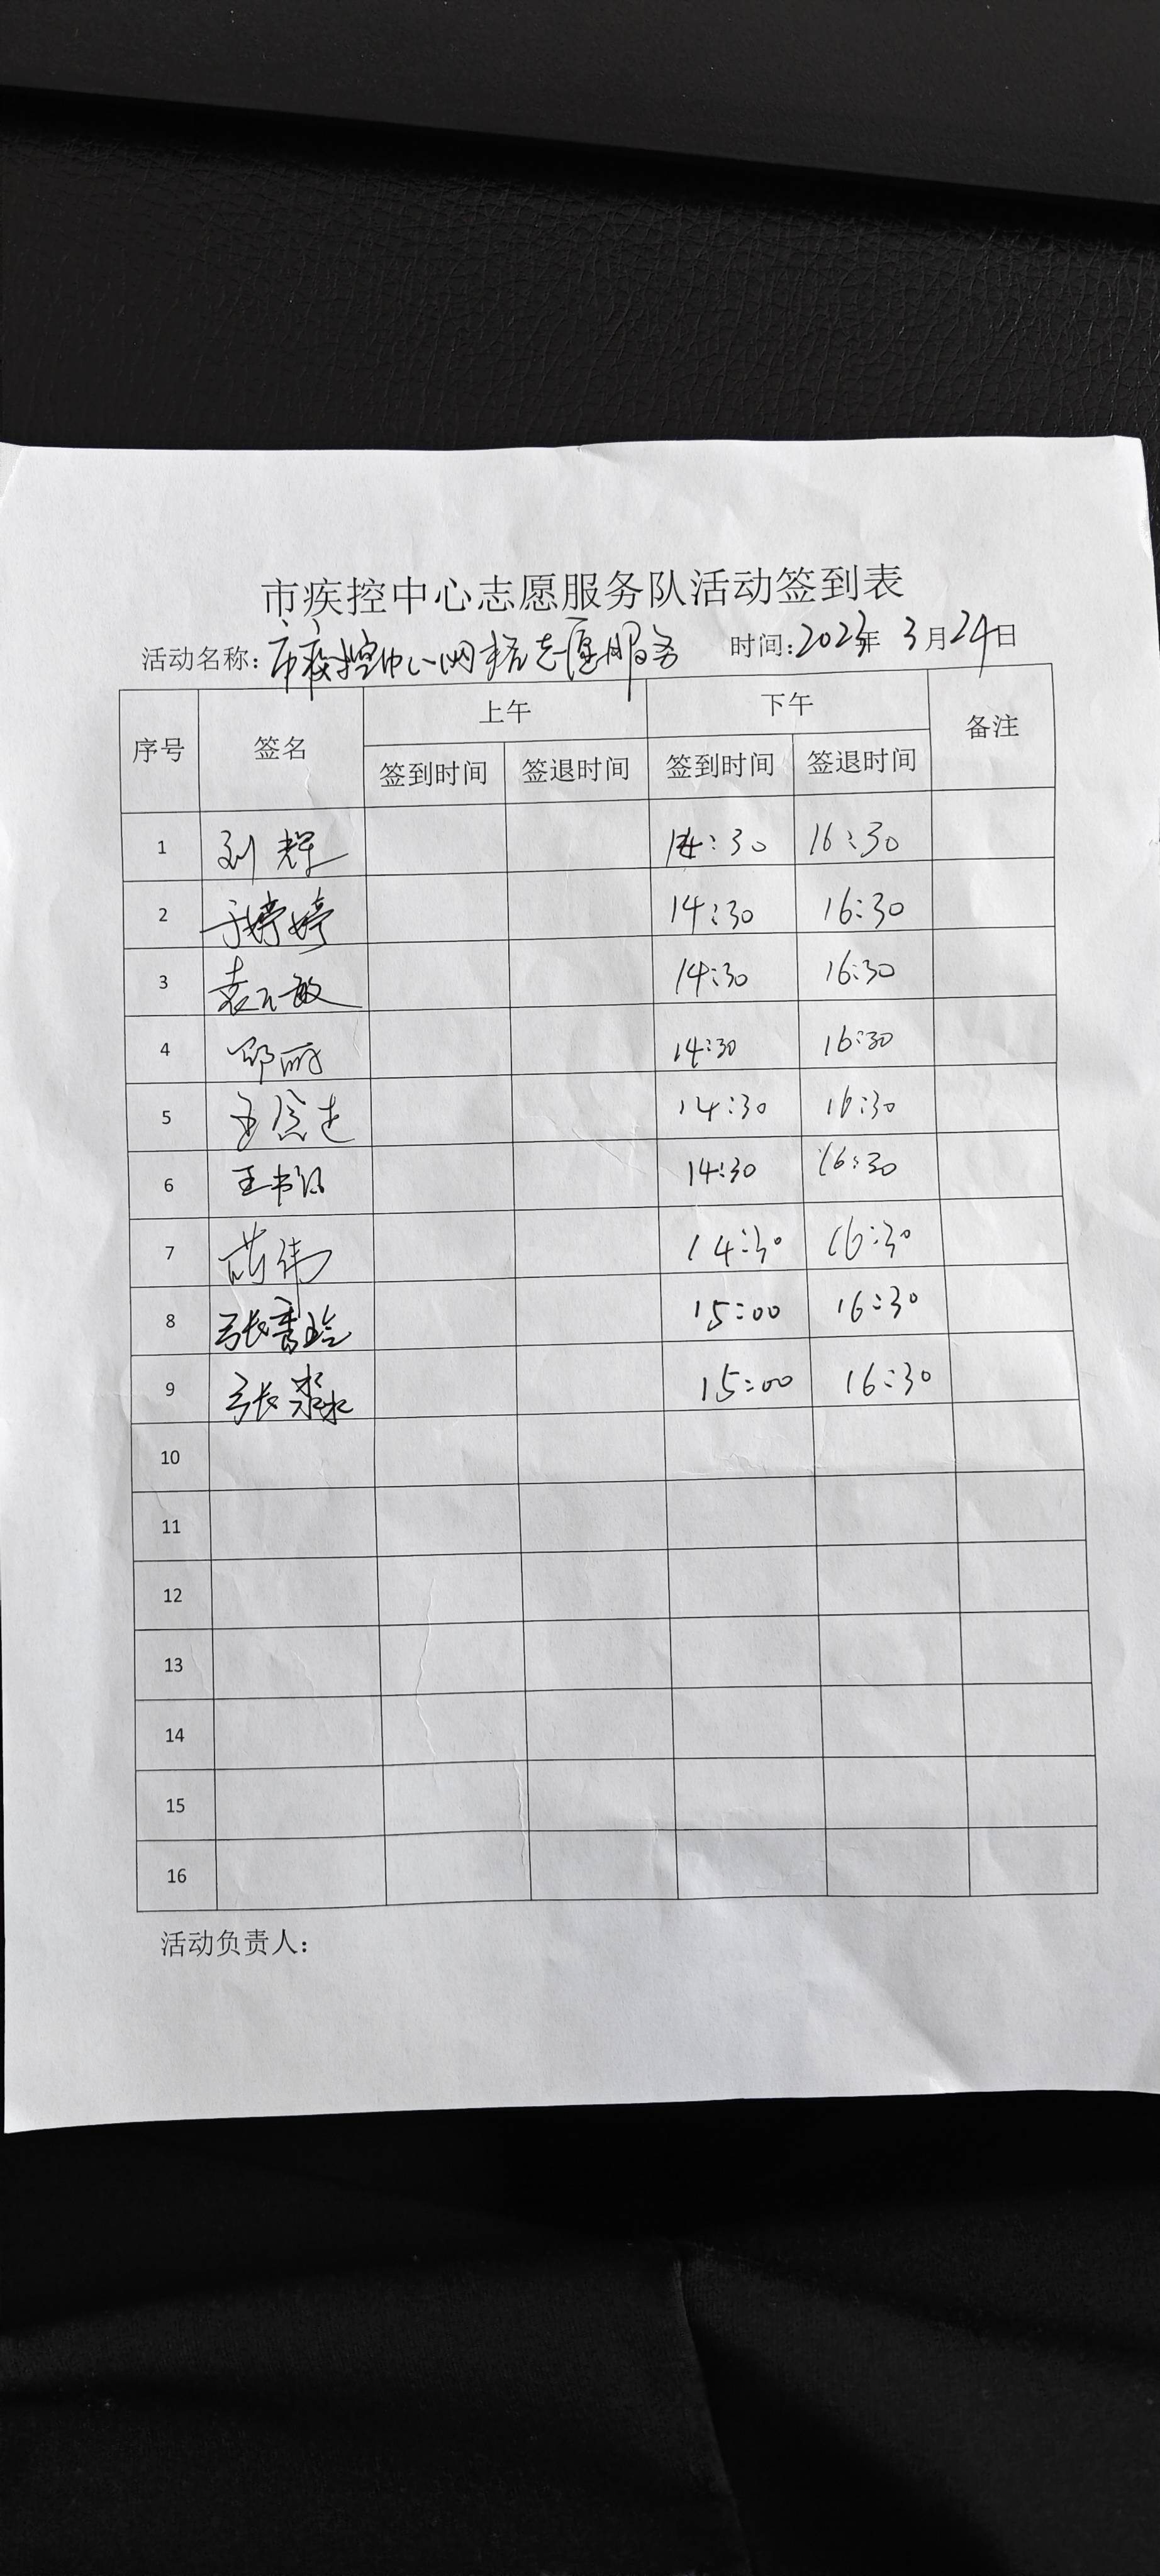 市疾控中心志愿服务队活动签到表
活动名称：市疾控中心网格志愿服务 时间：2023年 3月24日
序号 签名 上午 下午 备注
签到时间 签退时间 签到时间 签退时间
1 刘辉 14:30 16:30
2 于婷婷 14:30 16:30
3 袁 敏 14:30 16:30
4 14:30 16:30
5 14:30 16:30
6 王书 14:30 16:30
7 伟 14:30 16:30
8 张 15:00 16:30
9 张淼 15:00 16:30
10
11
12
13
14
15
16
活动负责人：